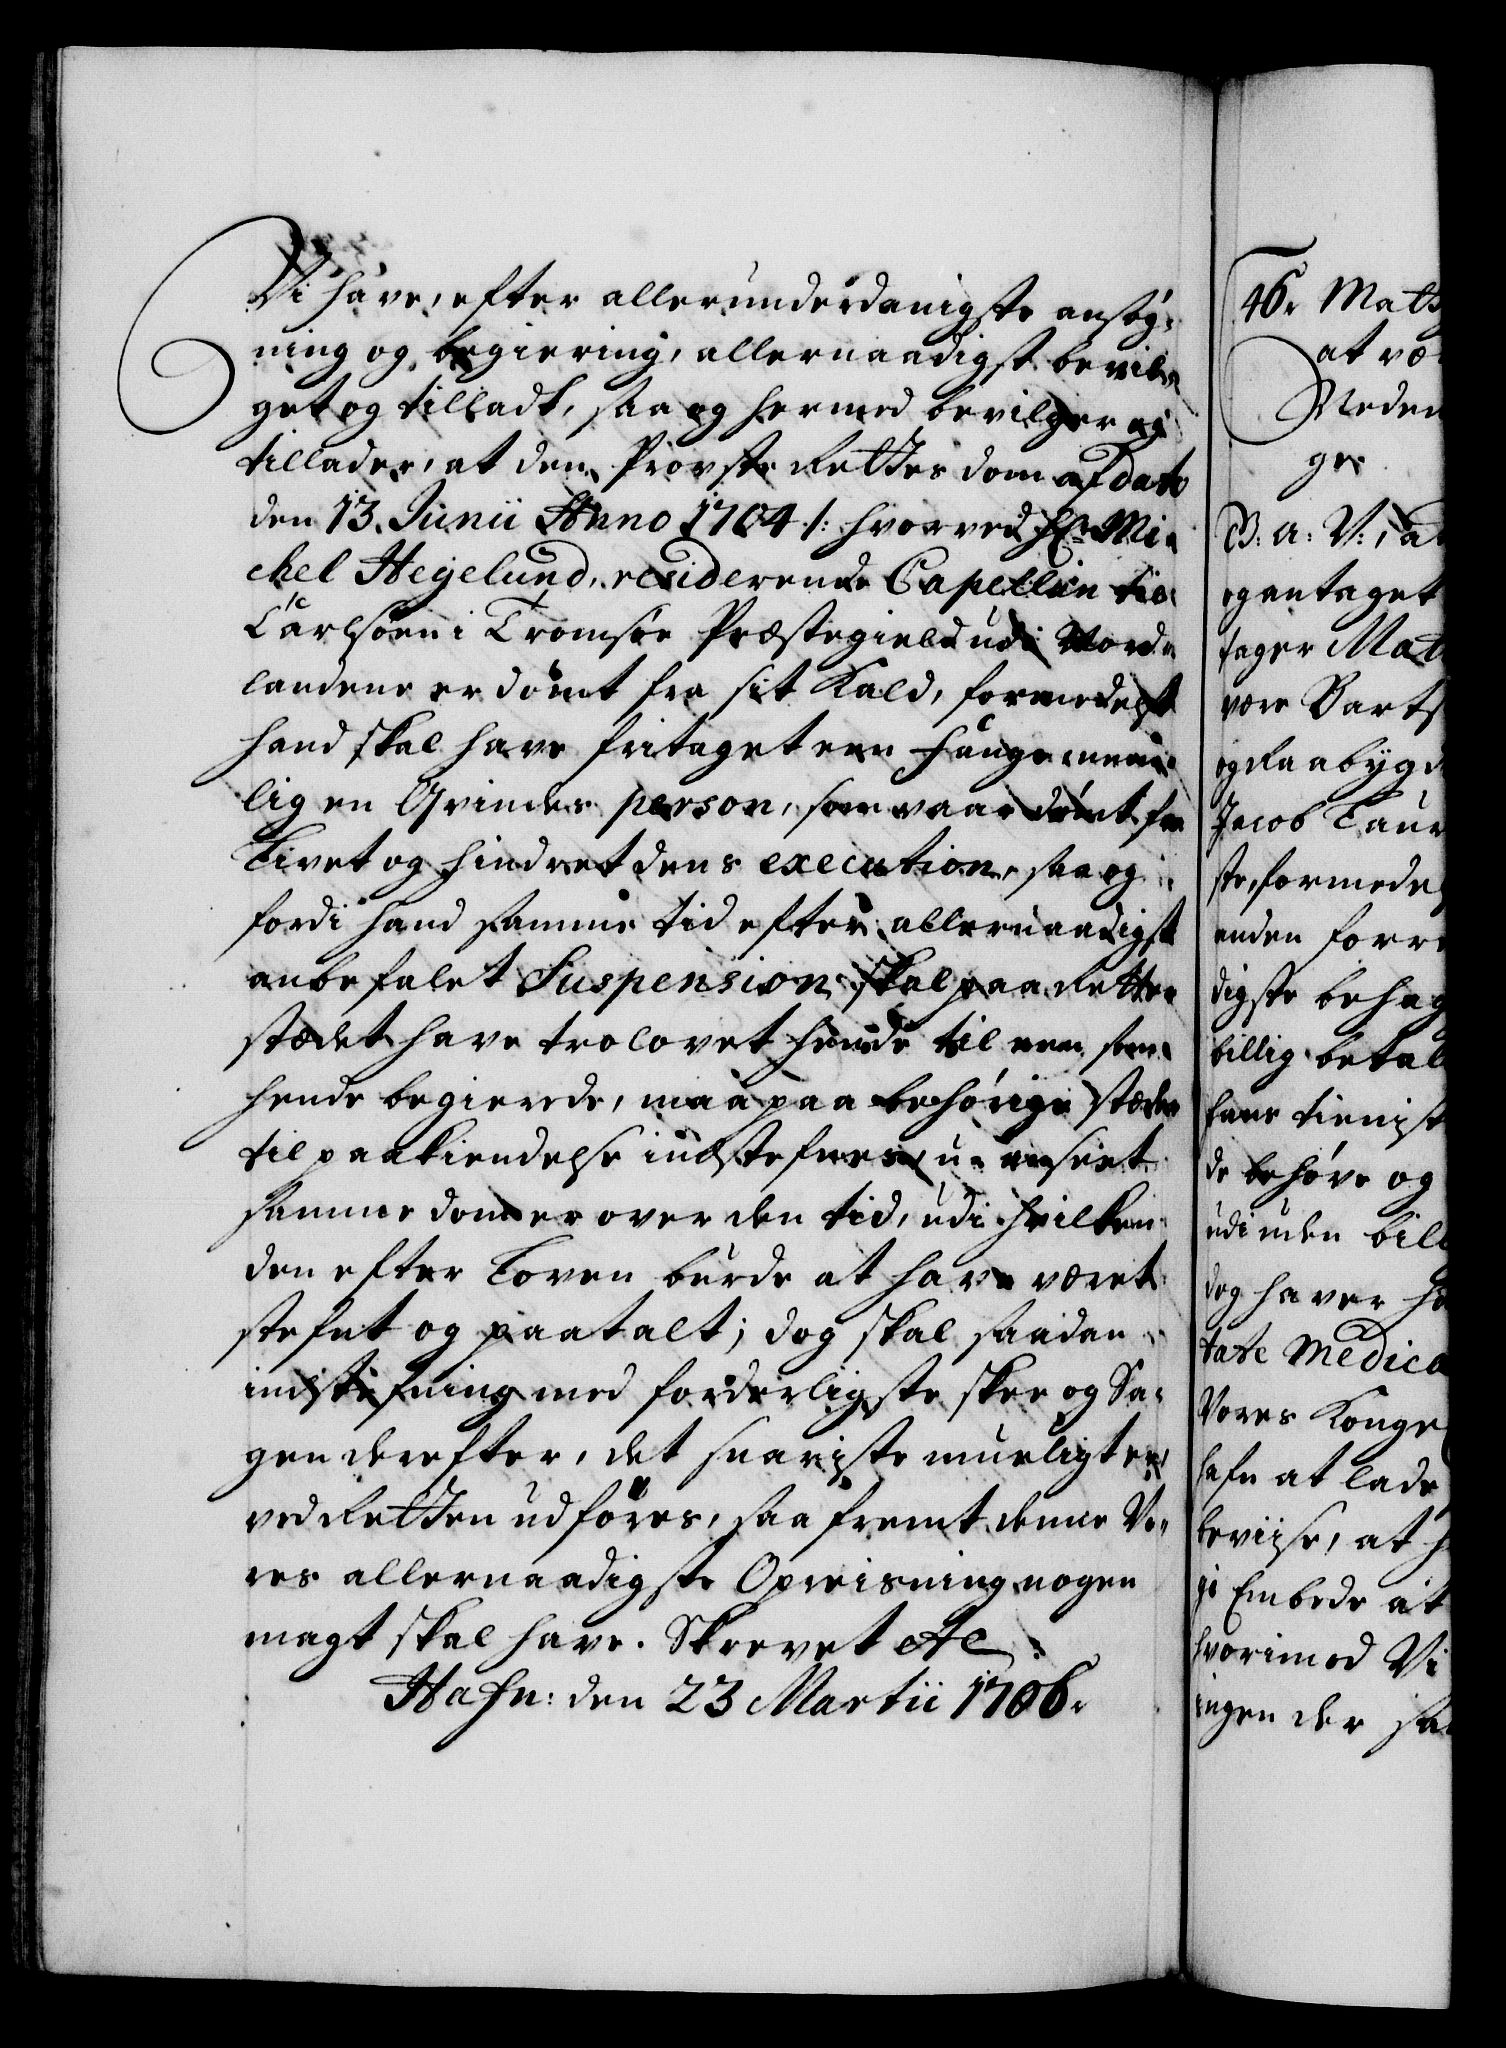 Vi have, efter allerunderdanigste ansøg-
ning og begiering, allernaadigst bevil-
get og tilladt, saa og hermed bevilger og
tillader, at den Provste Rettes dom af dato
den 13. Junii Anno 1704 /: hvorved Hr. Mi-
chel Hegelund, residerende Capellan til
Carlsøen i Tromsøe Præstegield udi Nord-
landene er dømt fra sit Kald, formedelst
hand skal have fritaget een fange nem-
lig en Qvindes person, som vaar dømt fra
Livet og hindret dens execution, saa og
fordi hand samme tid efter allernaadigst
anbefalet Suspension skal paa Retter-
stædet have trolovet hende til een som
hende begierede, maa paa behørige stæder
til paakiendelse indstefnes, u-anseet
samme dom er over den tid, udi hvilken
den efter Loven burde at have været
stefnt og paatalt; dog skal saadan
indstefning med forderligste skee og Sa-
gen derefter, det snariste mueligt er,
ved Retten udføres, saa fremt denne Vo-
res allernaadigste Opreisning nogen
magt skal have. Skrevet etc
Hafn: den 23 Martii 1706.
46. Mats
at væ
Neden
ges
V: a: V:, a
og antaget
tager Mat
være Barts
og Raabygd
Jacob Laur
ste, formedel
anden forr
digste behag
billig betal
hans tienist
de behøve og
udi uden bil
dog haver h
tate Medica
Vores Konge
hafn at lade
beviise, at h
gi Embede at
hvorimod Vi
ingen der sa